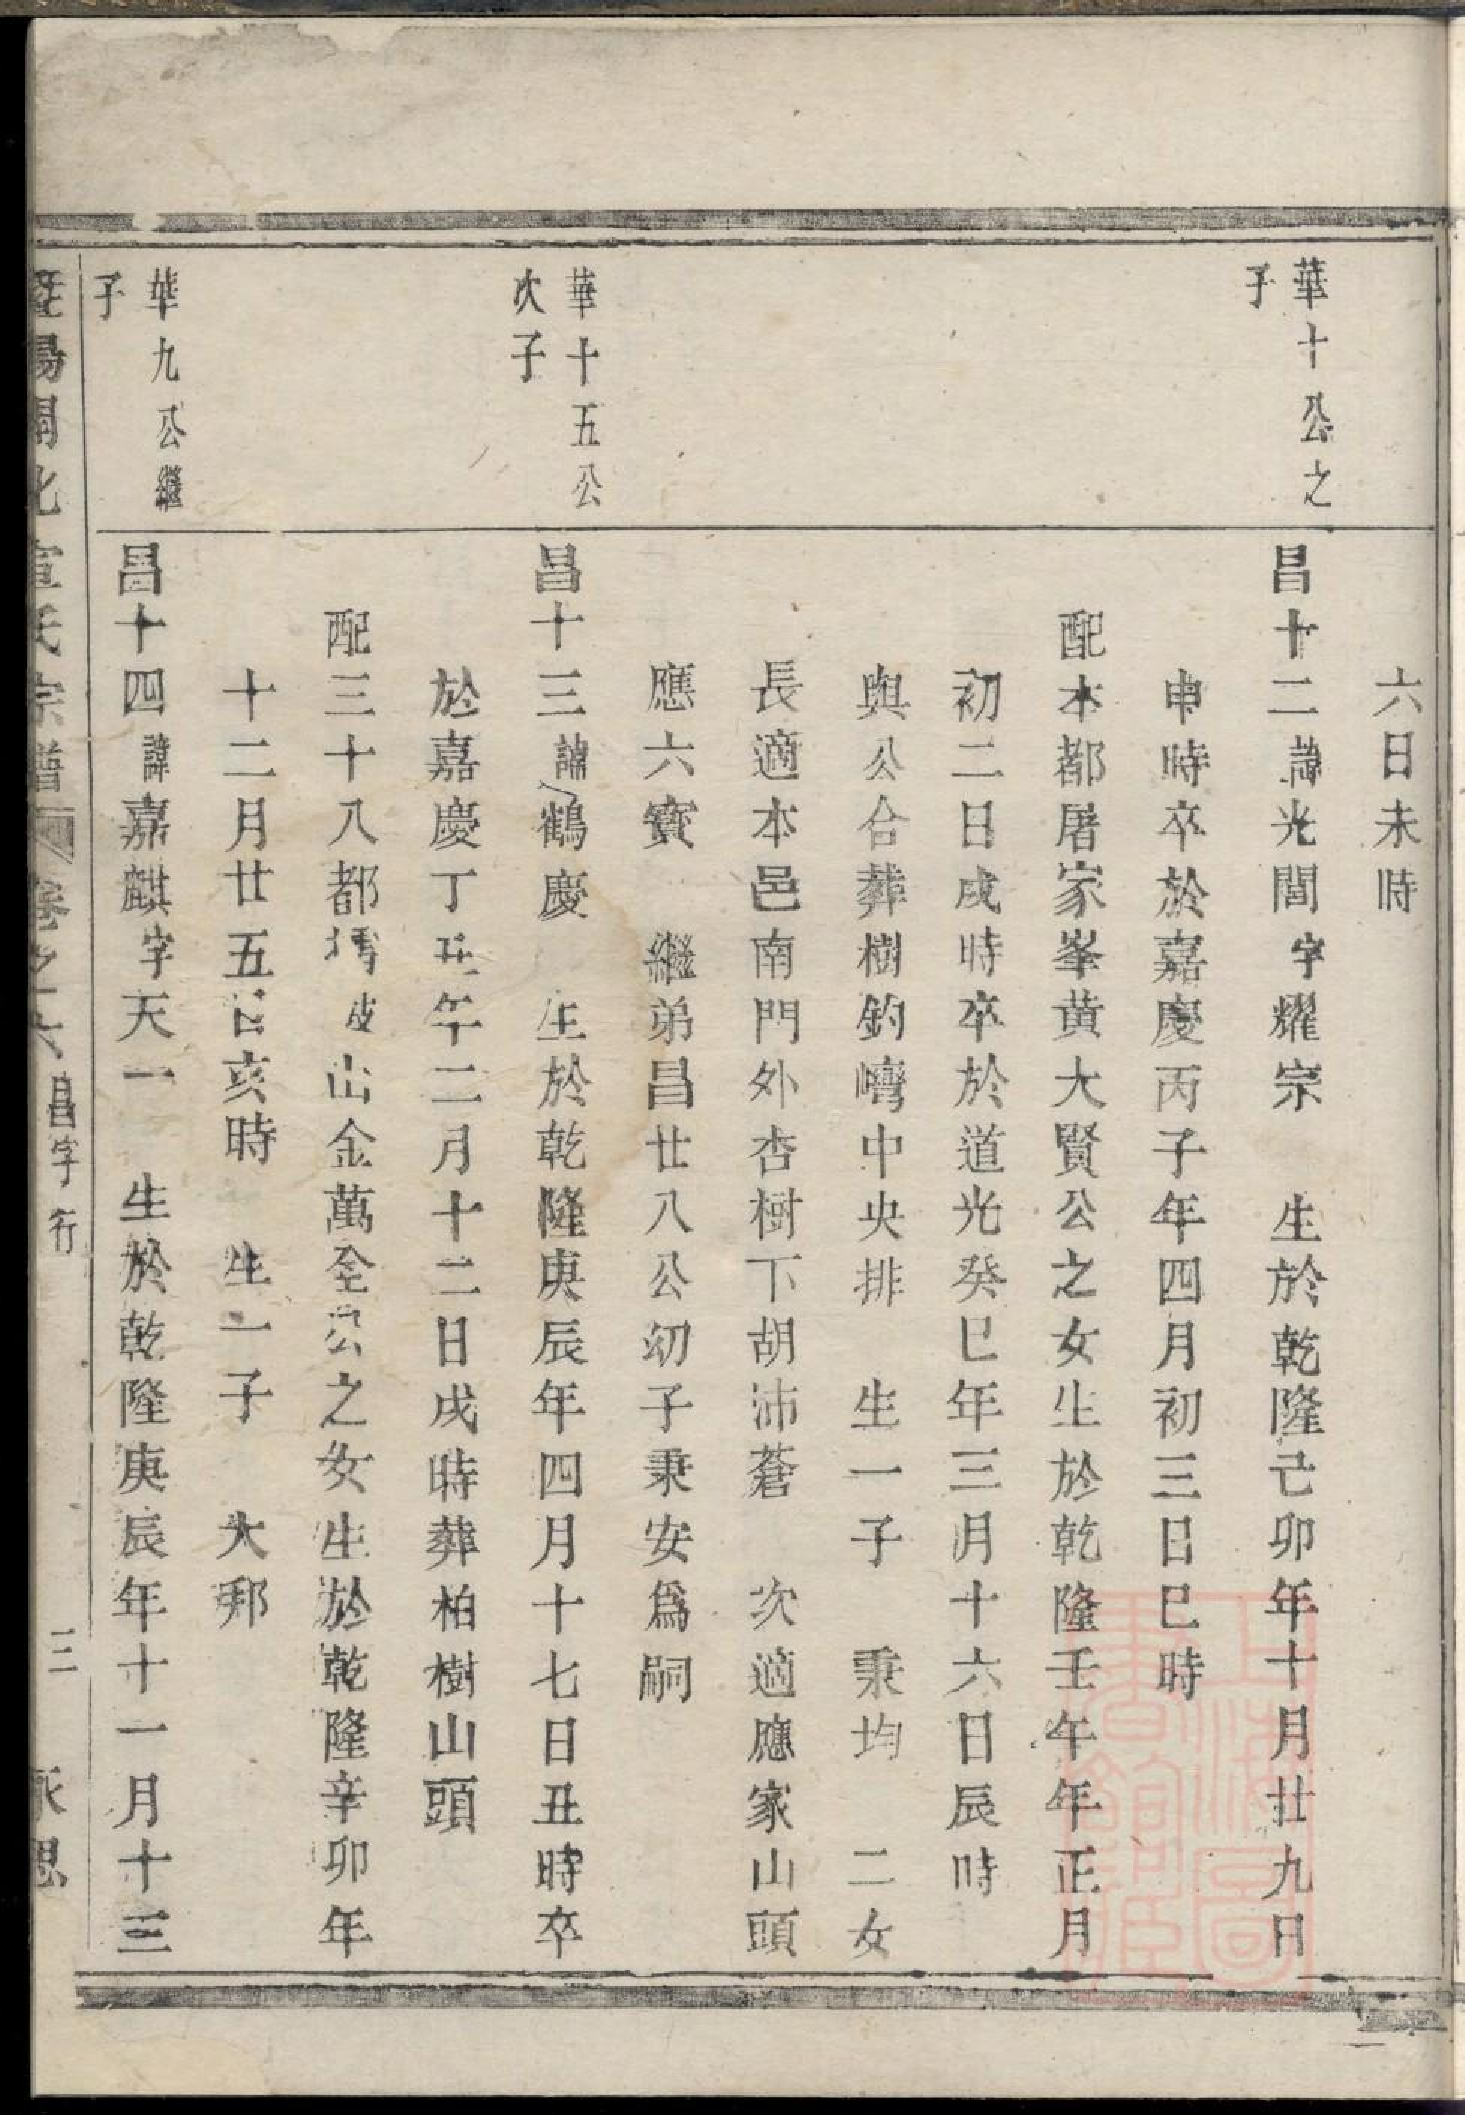 六日未時
華十公之
子
昌十二諱光閭字耀宗　生於乾隆己卯年十月廿九日
申時卒於嘉慶丙子年四月初三日巳時
配本都屠家峯黄大賢公之女生於乾隆壬午年正月
初二日戌時卒於道光癸巳年三月十六日辰時
與公合葬樹鈞嶹中央排　生一子　秉均　二女
長適本邑南門外杏樹下胡沛蒼　次適應家山頭
應六寳　繼弟昌廿八公幼子秉安爲嗣
華十五公
次子
昌十三諱鶴慶　生於乾隆庚辰年四月十七日丑時卒
於嘉慶丁丑年二月十二日戌時葬柏樹山頭
配三十八都出金萬全公之女生於乾隆辛卯年
十二月廿五日亥時　生一子　大邦
華九公繼
子
昌十四諱嘉麒字天一　生於乾隆庚辰年十一月十三
宣氏宗譜　卷之　昌字行　三
上海圖書館藏